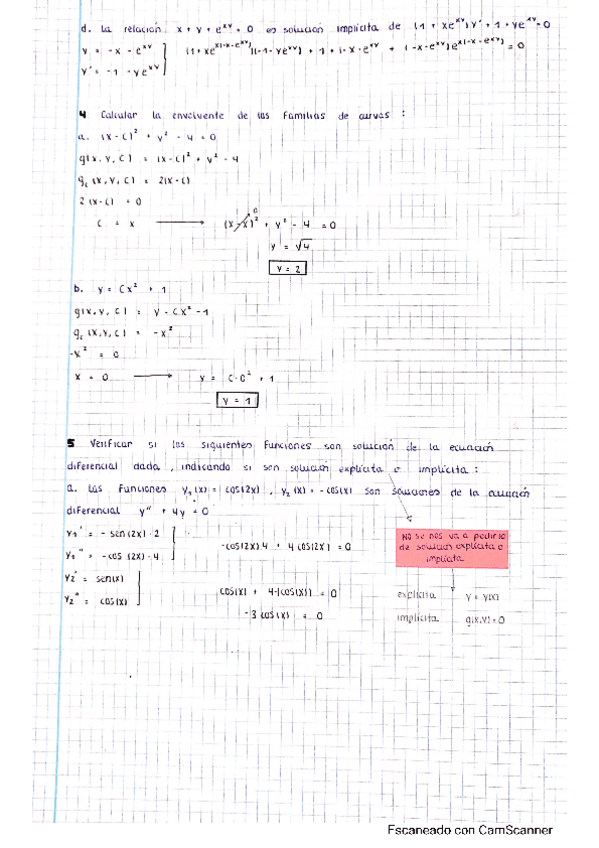 d. La relación x + y + e^xy = 0 es solución implícita de (1 + xe^xy)y' + 1 + ye^xy = 0
y = -x - e^xy
(1 + xe^x(-x-e^xy))(-1-ye^xy) + 1 + (-x-e^xy) e^x(-x-e^xy) = 0
y' = -1 - ye^xy
4 Calcular la envolvente de las familias de curvas :
a. (x-C)² + y² - 4 = 0
g(x,y,C) = (x-C)² + y² - 4
g_c (x,y,C) = 2(x-C)
2(x-C) = 0
C = x → (x-x)² 0 + y² - 4 = 0
y = √4
y = 2
b. y = Cx² + 1
g(x,y,C) = y - Cx² - 1
g_c (x,y,C) = -x²
-x² = 0
x = 0 → y = C·0² + 1
y = 1
5 Verificar si las siguientes funciones son solución de la ecuación
diferencial dada, indicando si son solución explícita o implícita :
a. Las funciones y₁(x) = cos(2x), y₂(x) = -cos(x) son soluciones de la ecuación
diferencial y'' + 4y = 0
y₁' = -sen(2x)·2
y₁'' = -cos(2x)·4
-cos(2x)4 + 4cos(2x) = 0
y₂' = sen(x)
y₂'' = cos(x)
cos(x) + 4·(-cos(x)) = 0
-3cos(x) = 0
No se nos va a pedir lo
de solución explícita o
implícita
explícita y = y(x)
implícita g(x,y) = 0
Escaneado con CamScanner